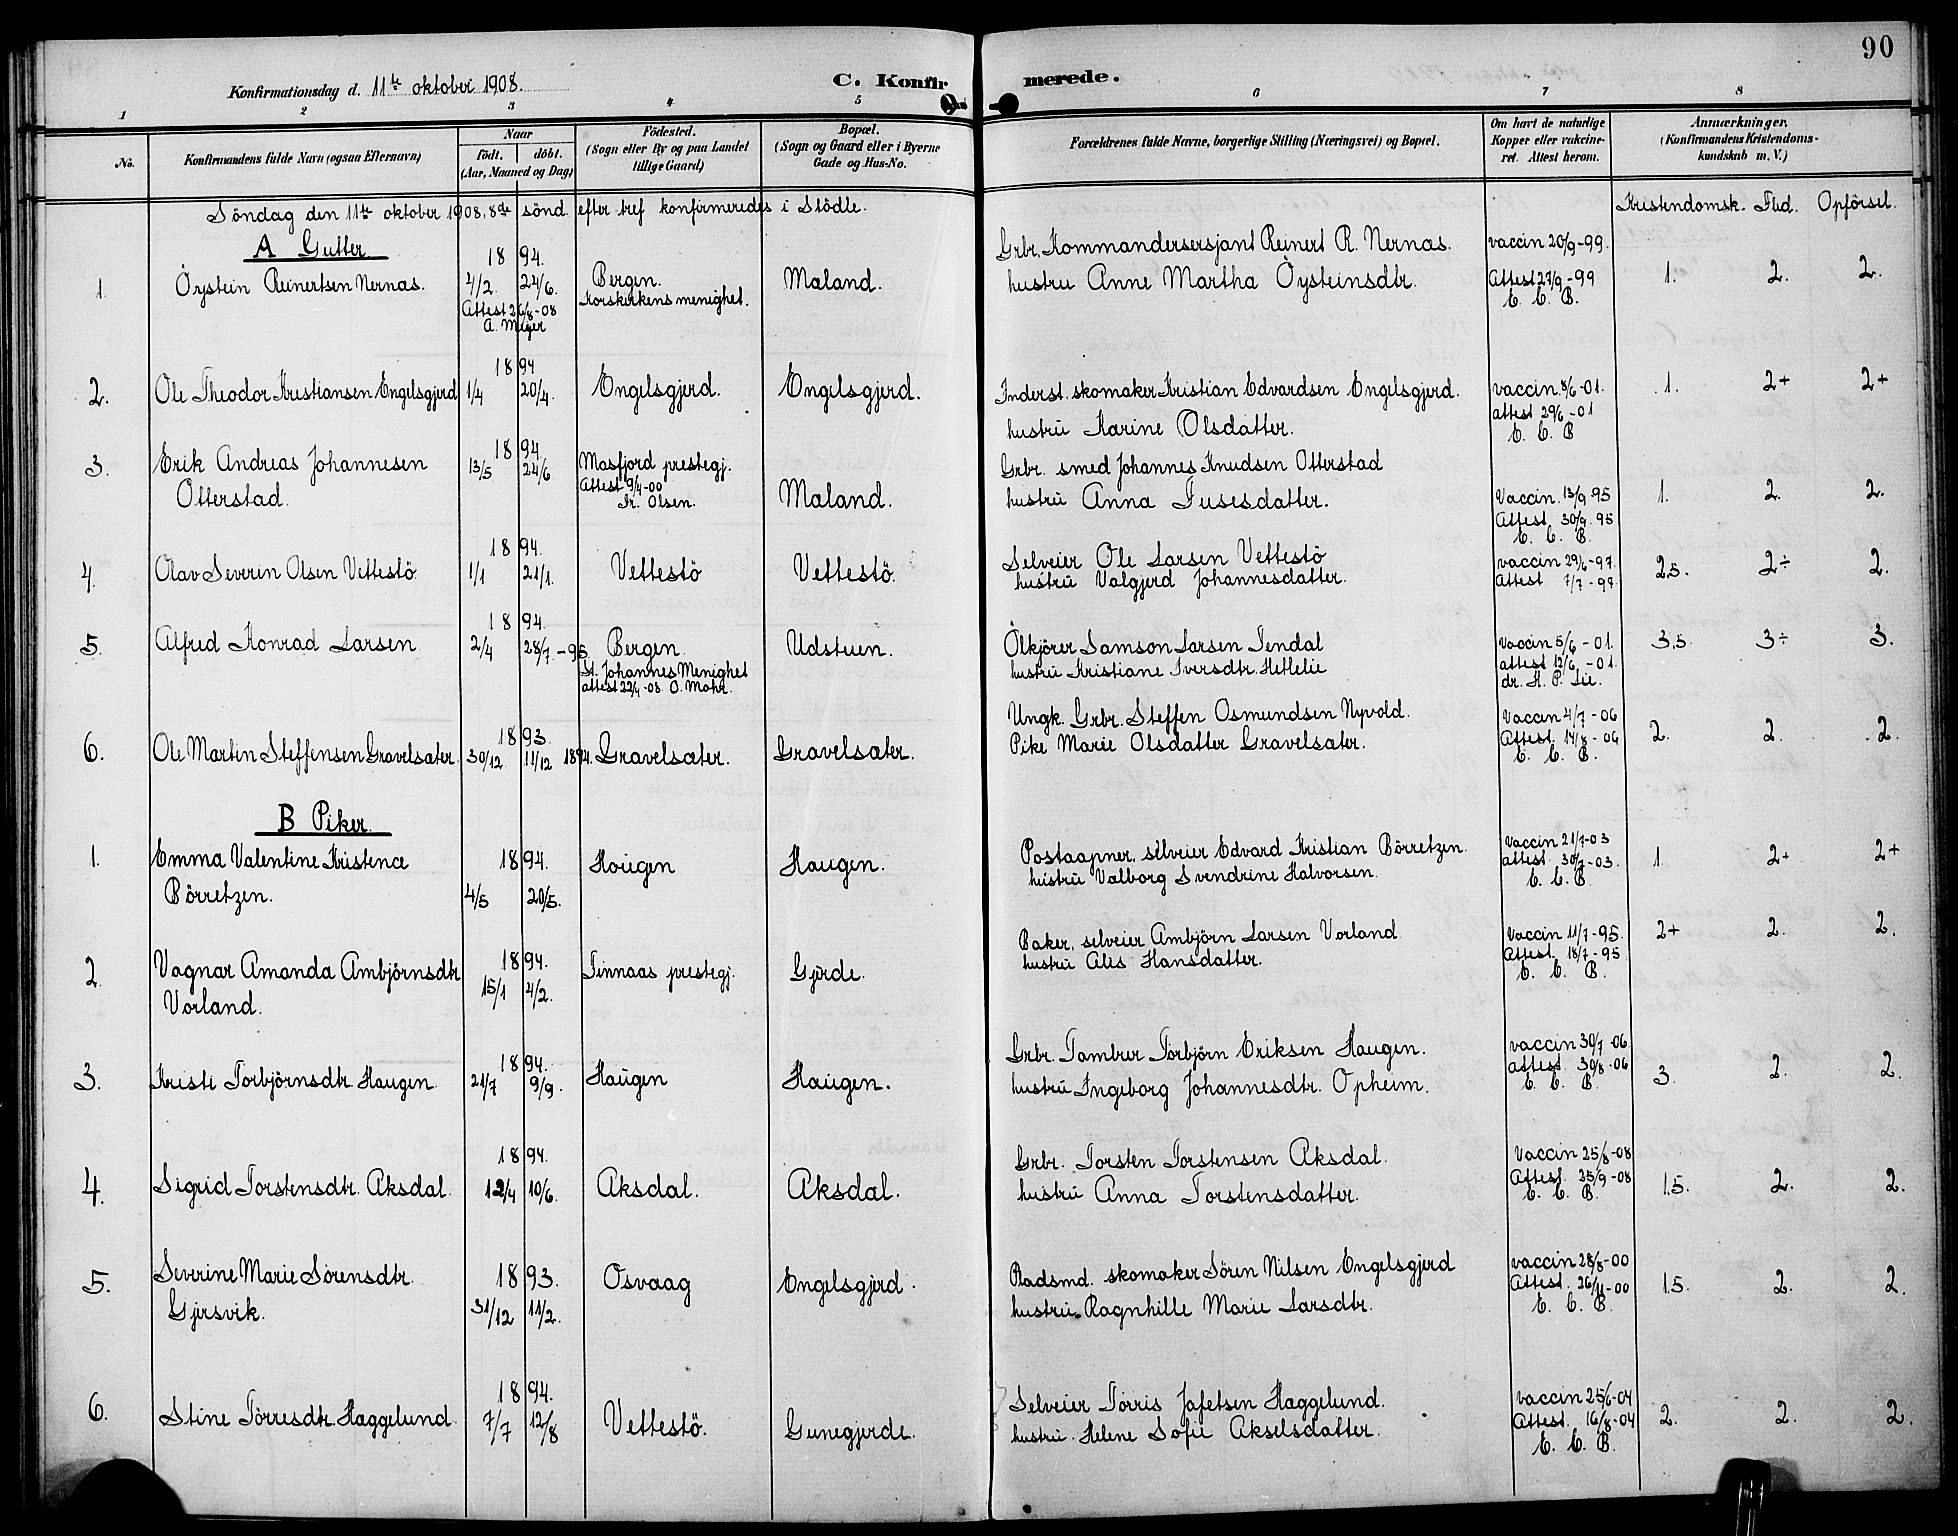 90
Konfirmationsdag d. 11te oktober 1908.
C. Konfirmerede.
1 2 3 4 5 6 7 8
No.
Konfirmandens fulde Navn (ogsaa Efternavn)
Naar
födt. döbt.
(Aar, Maaned og Dag)
Födested.
(Sogn eller By og paa Landet
tillige Gaard)
Bopæl.
(Sogn og Gaard eller i Byerne
Gade og Hus-No.
Forældrenes fulde Navne, borgerlige Stilling (Næringsvei) og Bopæl.
Om havt de naturlige
Kopper eller vakcine-
ret. Attest herom.
Anmærkninger.
(Konfirmandens Kristendoms-
kundskab m. V.)
Söndag den 11te oktober 1908, 8de sönd. efter tref konfirmeredes i Stödle.
Kristendomsk. Flid. Opförsel.
A Gutter
1. Öystein Reinertsen Nernas. 1894. 4/2. 24/6. Bergen. Maland.
Korskirkens menighet.
Attest 26/8-08
A. Meyer
Grbr. Kommandersersjant Reinert R. Nernas. vaccin 20/9-99.
hustru Anne Martha Öysteinsdtr. Attest 27/9-99 1. 2. 2.
E. C. B.
2. Ole Theodor Kristiansen Engelsgjerd 1894 1/4 20/4. Engelsgjerd. Engelsgjerd.
Inderst. skomaker Kristian Edvardsen Engelsgjerd. vaccin 8/6-01. 1. 2+ 2+
hustru Karine Olsdatter. attest 29/6-01
E. C. B
3. Erik Andreas Johannesen 1894. 13/5 24/6 Masfjord prestegj.
Otterstad. Attest 9/4-00 Maland.
Fr. Olsen.
Grbr. smed Johannes Knudsen Otterstad
hustru Anna Tusesdatter. Vaccin. 13/9 95 1. 2. 2.
Attest. 30/9. 95
E. C. B.
4. Olav Severin Olsen Vettestö 1894. 1/1 21/1. Vettestö Vettestö.
Selveier Ole Larsen Vettestö vaccin 29/6-97. 2.5. 2÷ 2.
hustru Valgjerd Johannesdatter. Attest 7/7-97
5. Alfred Konrad Larsen 1894. 2/4 28/7-95 Bergen. Udstuen.
St. Johannes Menighet
attest 22/4-08. O. Mohr.
Ölkjörer Samson Larsen Tendal Vaccin 5/6-01. 3.5 3÷ 3.
hustru Kristiane Iversdtr. Hetlelie attest 12/6-01.
dr. K. P. Lie.
6. Ole Martin Steffensen Gravelsæter. 1893. 30/12 11/12 1894. Gravelsæter. Gravelsæter.
Ungk. Grbr. Steffen Osmundsen Nyvold. Vaccin 4/7-06
Pike Marie Olsdatter Gravelsæter. Attest. 14/8-06 2. 2. 2.
E. C. B.
B Piker.
1. Emma Valentine Kristence 1894. Haugen Haugen.
Börretzen. 4/5 20/5.
Postaapner, selveier Edvard Kristian Börretzen. Vaccin 21/7-03
hustru Valborg Svendrine Halvorsen. attest. 30/7-03. 1 2+ 2+
E. C. B.
2. Vagnar Amanda Ambjörnsdtr 1894. Finnaas prestegj. Gjerde.
Vorland. 15/1 4/2.
Baker, selveier Ambjörn Larsen Vorland Vaccin 11/7-95. 2+ 2. 2.
hustru Ales Hansdatter. Attest. 18/7-95
E. C. B.
3. Kristi Torbjörnsdtr. Haugen. 1894. 21/7 9/9. Haugen Haugen.
Grbr. Tømbrer Torbjörn Eriksen Haugen. vaccin 30/7-06.
hustru Ingeborg Johannesdtr. Opheim. Attest 30/8-06 3. 2. 2.
E. C. B.
4. Sigrid Torstensdtr. Aksdal. 1894. 12/4 10/6. Aksdal. Aksdal.
Grbr. Torsten Torstensen Aksdal. Vaccin 25/8-08
hustru Anna Torstensdatter. Attest. 25/9-08 1.5. 2. 2.
E. C. B.
5. Severine Marie Sörensdtr. 1893. Osvaag Engelsgjerd.
Gjersvik. 31/12 11/2.
Pladsmd. skomaker Sören Nilsen Engelsgjerd vaccin 28/8-00
hustru Ragnhille Marie Larsdtr. Attest. 26/11-00 1.5. 2. 2.
E. C. B.
6. Stine Törresdtr. Haggelund. 1894. 7/7 12/8 Vettestö. Gunegjerde.
Selveier Törris Jafetsen Haggelund. vaccin 25/6-04
hustru. Helene Sofie Akselsdatter. Attest. 16/8-04 2. 2. 2.
E. C. B.